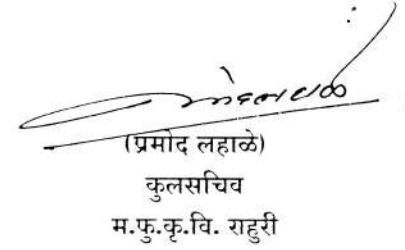 (प्रमोद लहाळे)
कुलसचिव
म.फु.कृ.वि. राहुरी